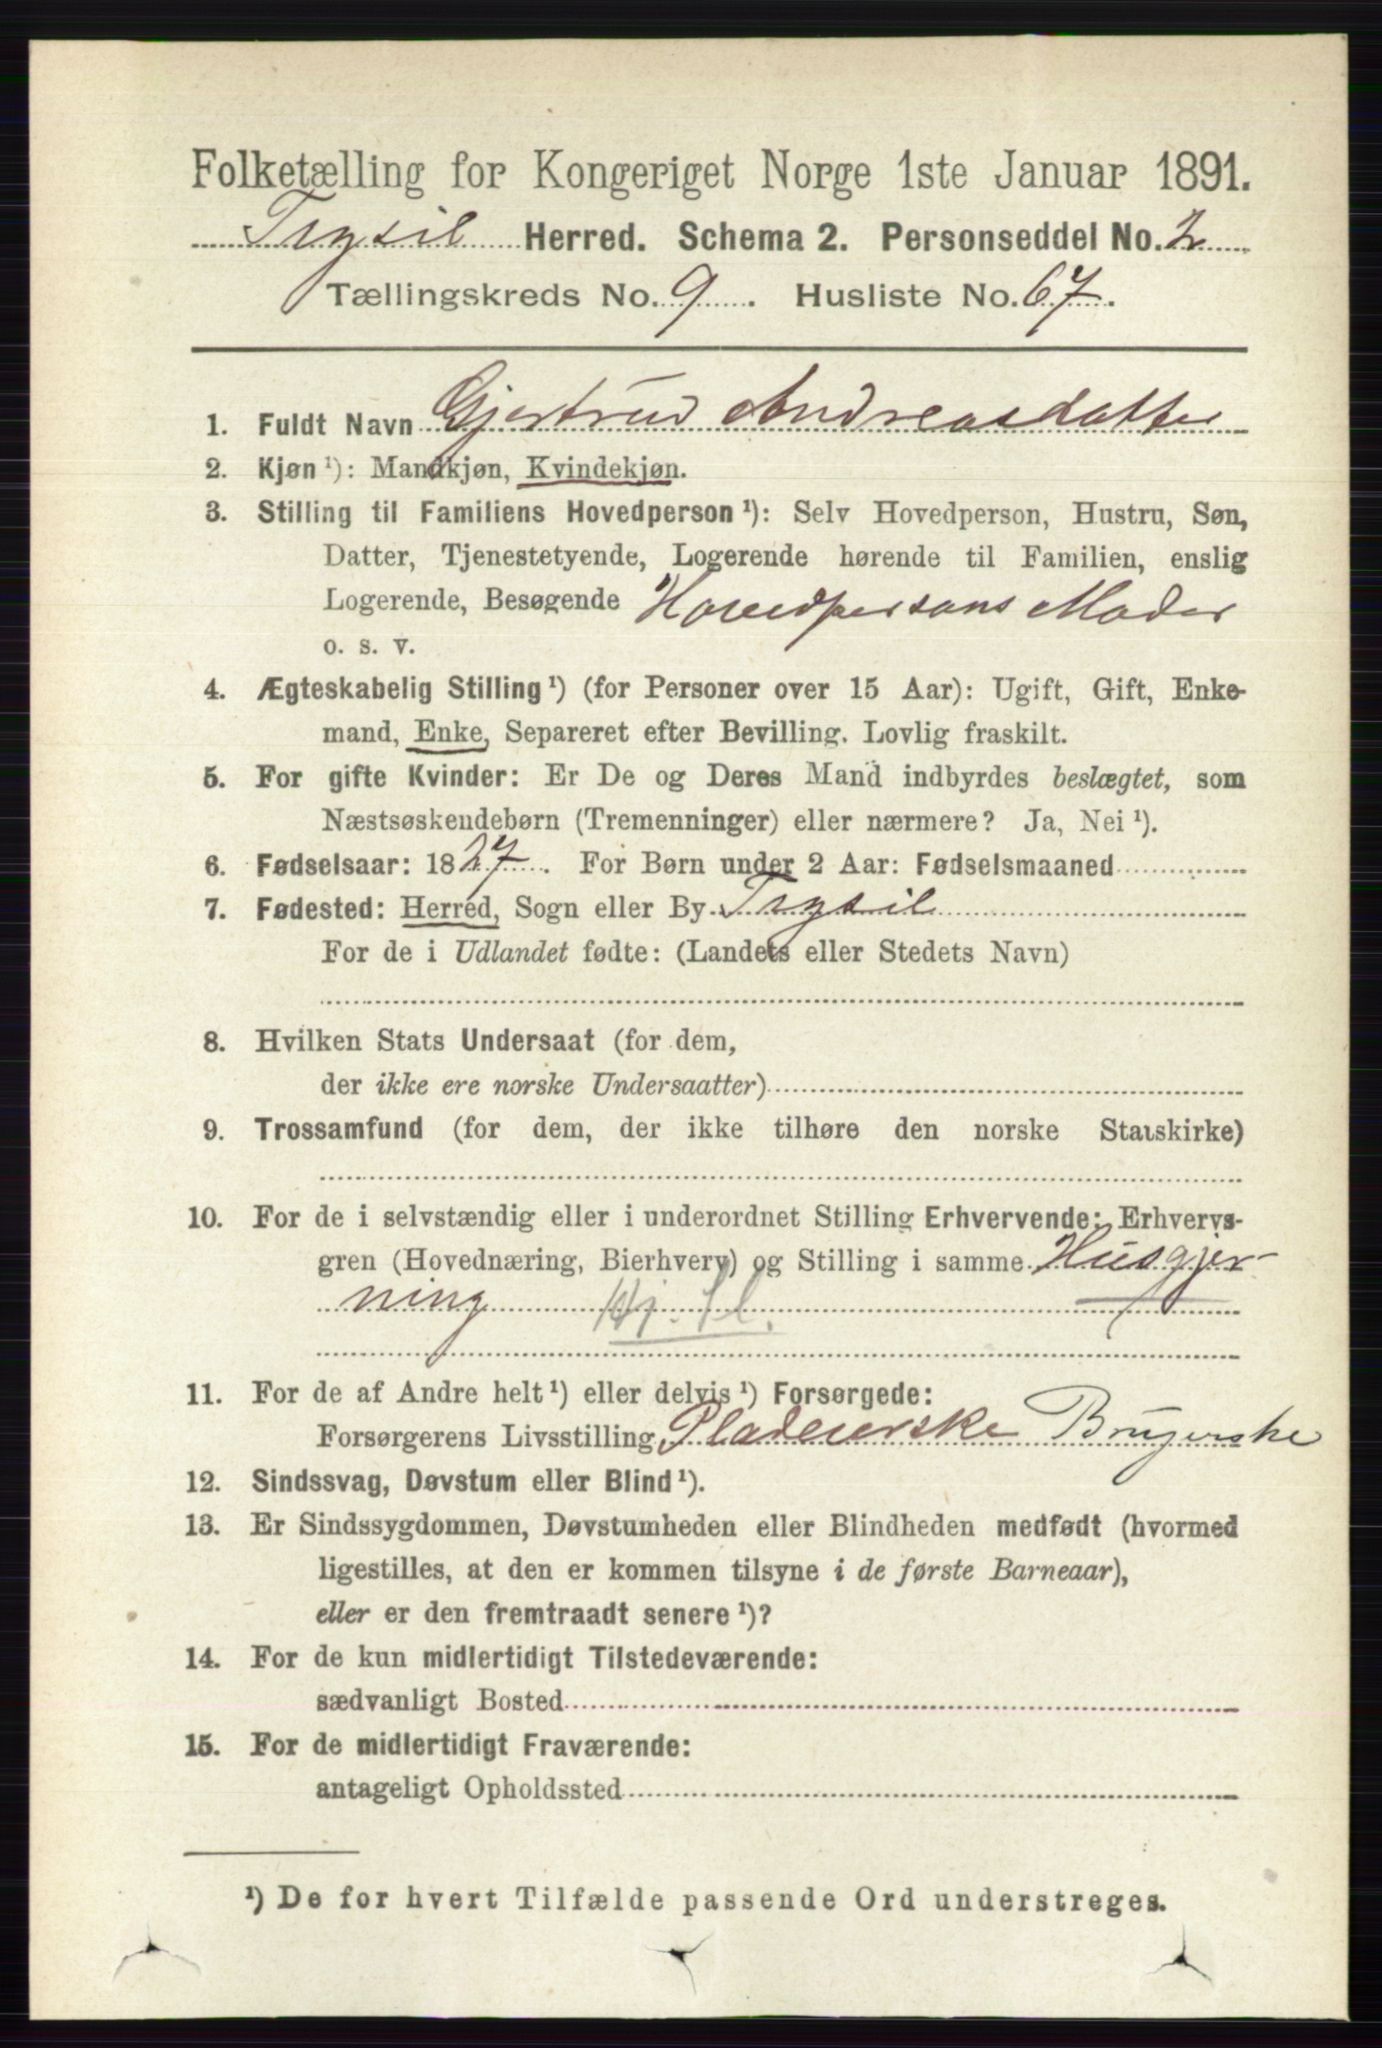 Folketælling for Kongeriget Norge 1ste Januar 1891.
Trysil Herred. Schema 2. Personseddel No. 2
Tællingskreds No. 9. Husliste No. 67.
1. Fuldt Navn Gjertrud Andreasdatter
2. Kjøn ¹): Mandkjøn, Kvindekjøn.
3. Stilling til Familiens Hovedperson ¹): Selv Hovedperson, Hustru, Søn,
Datter, Tjenestetyende, Logerende hørende til Familien, enslig
Logerende, Besøgende Hovedpersons Moder
o. s. v.
4. Ægteskabelig Stilling ¹) (for Personer over 15 Aar): Ugift, Gift, Enke-
mand, Enke, Separeret efter Bevilling. Lovlig fraskilt.
5. For gifte Kvinder: Er De og Deres Mand indbyrdes beslægtet, som
Næstsøskendebørn (Tremenninger) eller nærmere? Ja, Nei ¹).
6. Fødselsaar: 1827. For Børn under 2 Aar: Fødselsmaaned
7. Fødested: Herred, Sogn eller By Trysil
For de i Udlandet fødte: (Landets eller Stedets Navn)
8. Hvilken Stats Undersaat (for dem,
der ikke ere norske Undersaatter)
9. Trossamfund (for dem, der ikke tilhøre den norske Statskirke)
10. For de i selvstændig eller i underordnet Stilling Erhvervende: Erhvervs-
gren (Hovednæring, Bierhverv) og Stilling i samme Husgjer-
ning
11. For de af Andre helt ¹) eller delvis ¹) Forsørgede:
Forsørgerens Livsstilling Pladeierske Brugerske
12. Sindssvag, Døvstum eller Blind ¹).
13. Er Sindssygdommen, Døvstumheden eller Blindheden medfødt (hvormed
ligestilles, at den er kommen tilsyne i de første Barneaar),
eller er den fremtraadt senere ¹)?
14. For de kun midlertidigt Tilstedeværende:
sædvanligt Bosted
15. For de midlertidigt Fraværende:
antageligt Opholdssted
¹) De for hvert Tilfælde passende Ord understreges.